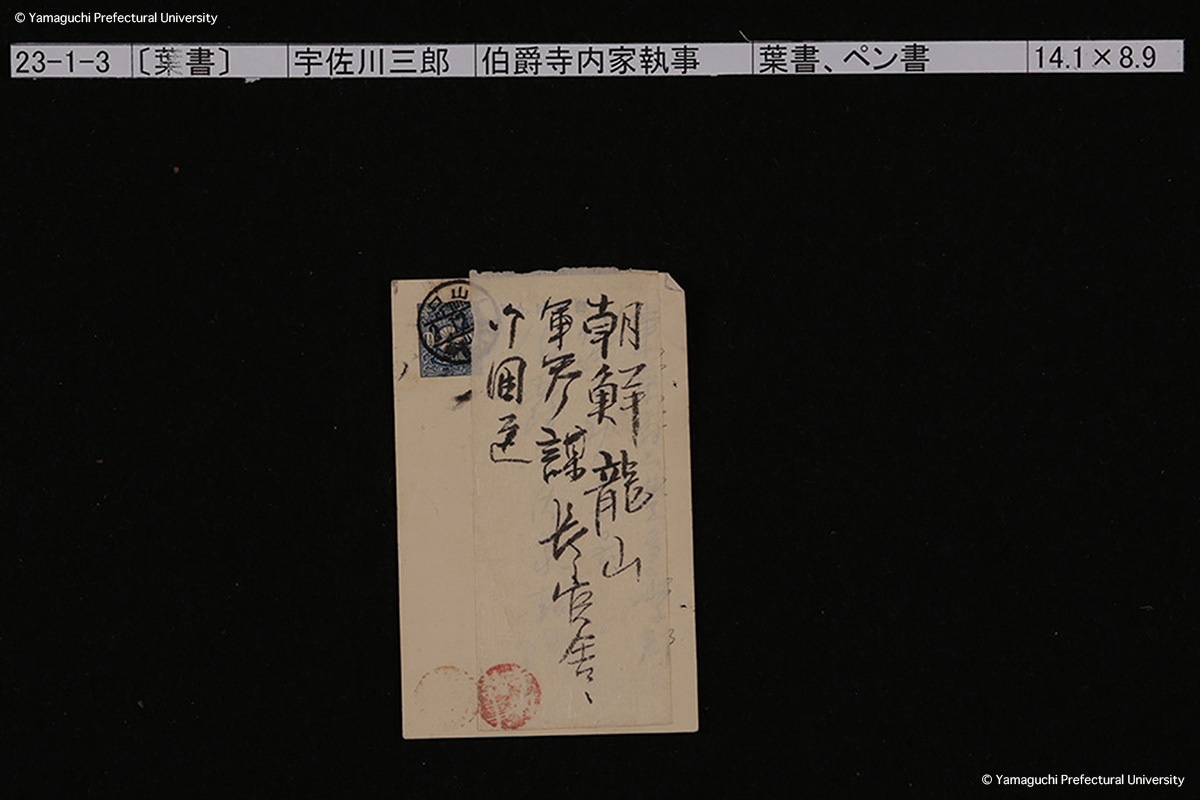 © Yamaguchi Prefectural University
23-1-3 〔葉書〕 宇佐川三郎 伯爵寺内家執事 葉書、ペン書 14.1×8.9
朝鮮龍山
軍参謀長官舎
回送
山口
© Yamaguchi Prefectural University